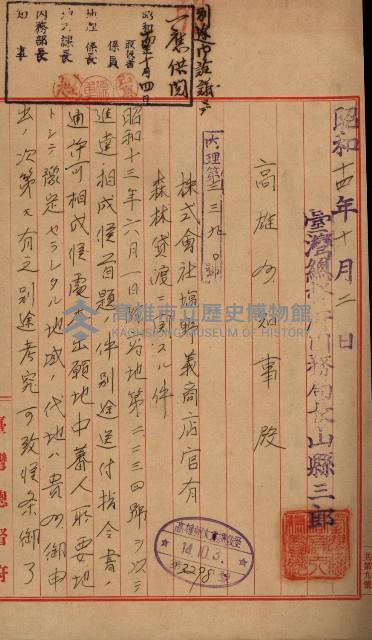 別途市說議ニ
一應供閲
昭和14年十月四日
取扱者
係員
地理係長
地方課長
內務部長
知事
昭和十四年十月二日
臺灣總督府內務局長山縣三郎
高雄州知事殿
內理第三三九〇號
株式會社塩野義商店官有
森林貸渡ニ關スル件
昭和十三年六月一日雄內地第二二三四號ヲ以テ
進達相成候首題ノ件別途送付指令書ノ
通許可相成候處本出願地中蕃人所要地
トシテ豫定セラレタル地域ノ代地ハ貴州御申
出ノ次第モ有之別途考究可致候条御了
臺灣總督府
高雄州文書課收受
14.10.3.
第3298號
高雄市立歷史博物館
KAOHSIUNG MUSEUM OF HISTORY